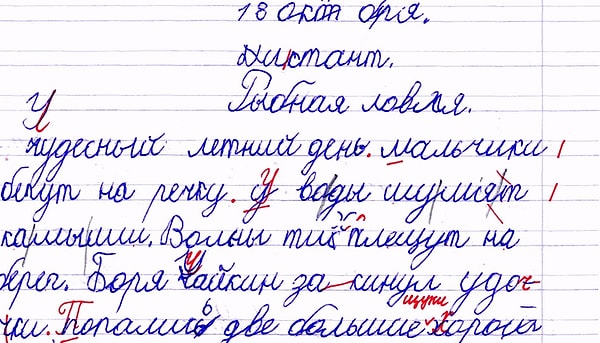 18 октября.
Диктант.
Рыбная ловля.
Чудесный летний день. мальчики
бегут на речку. У воды шумят
камыши. Волны тих плещут на
берег. Боря Чайкин за кинул удо
чки. Попались две большие